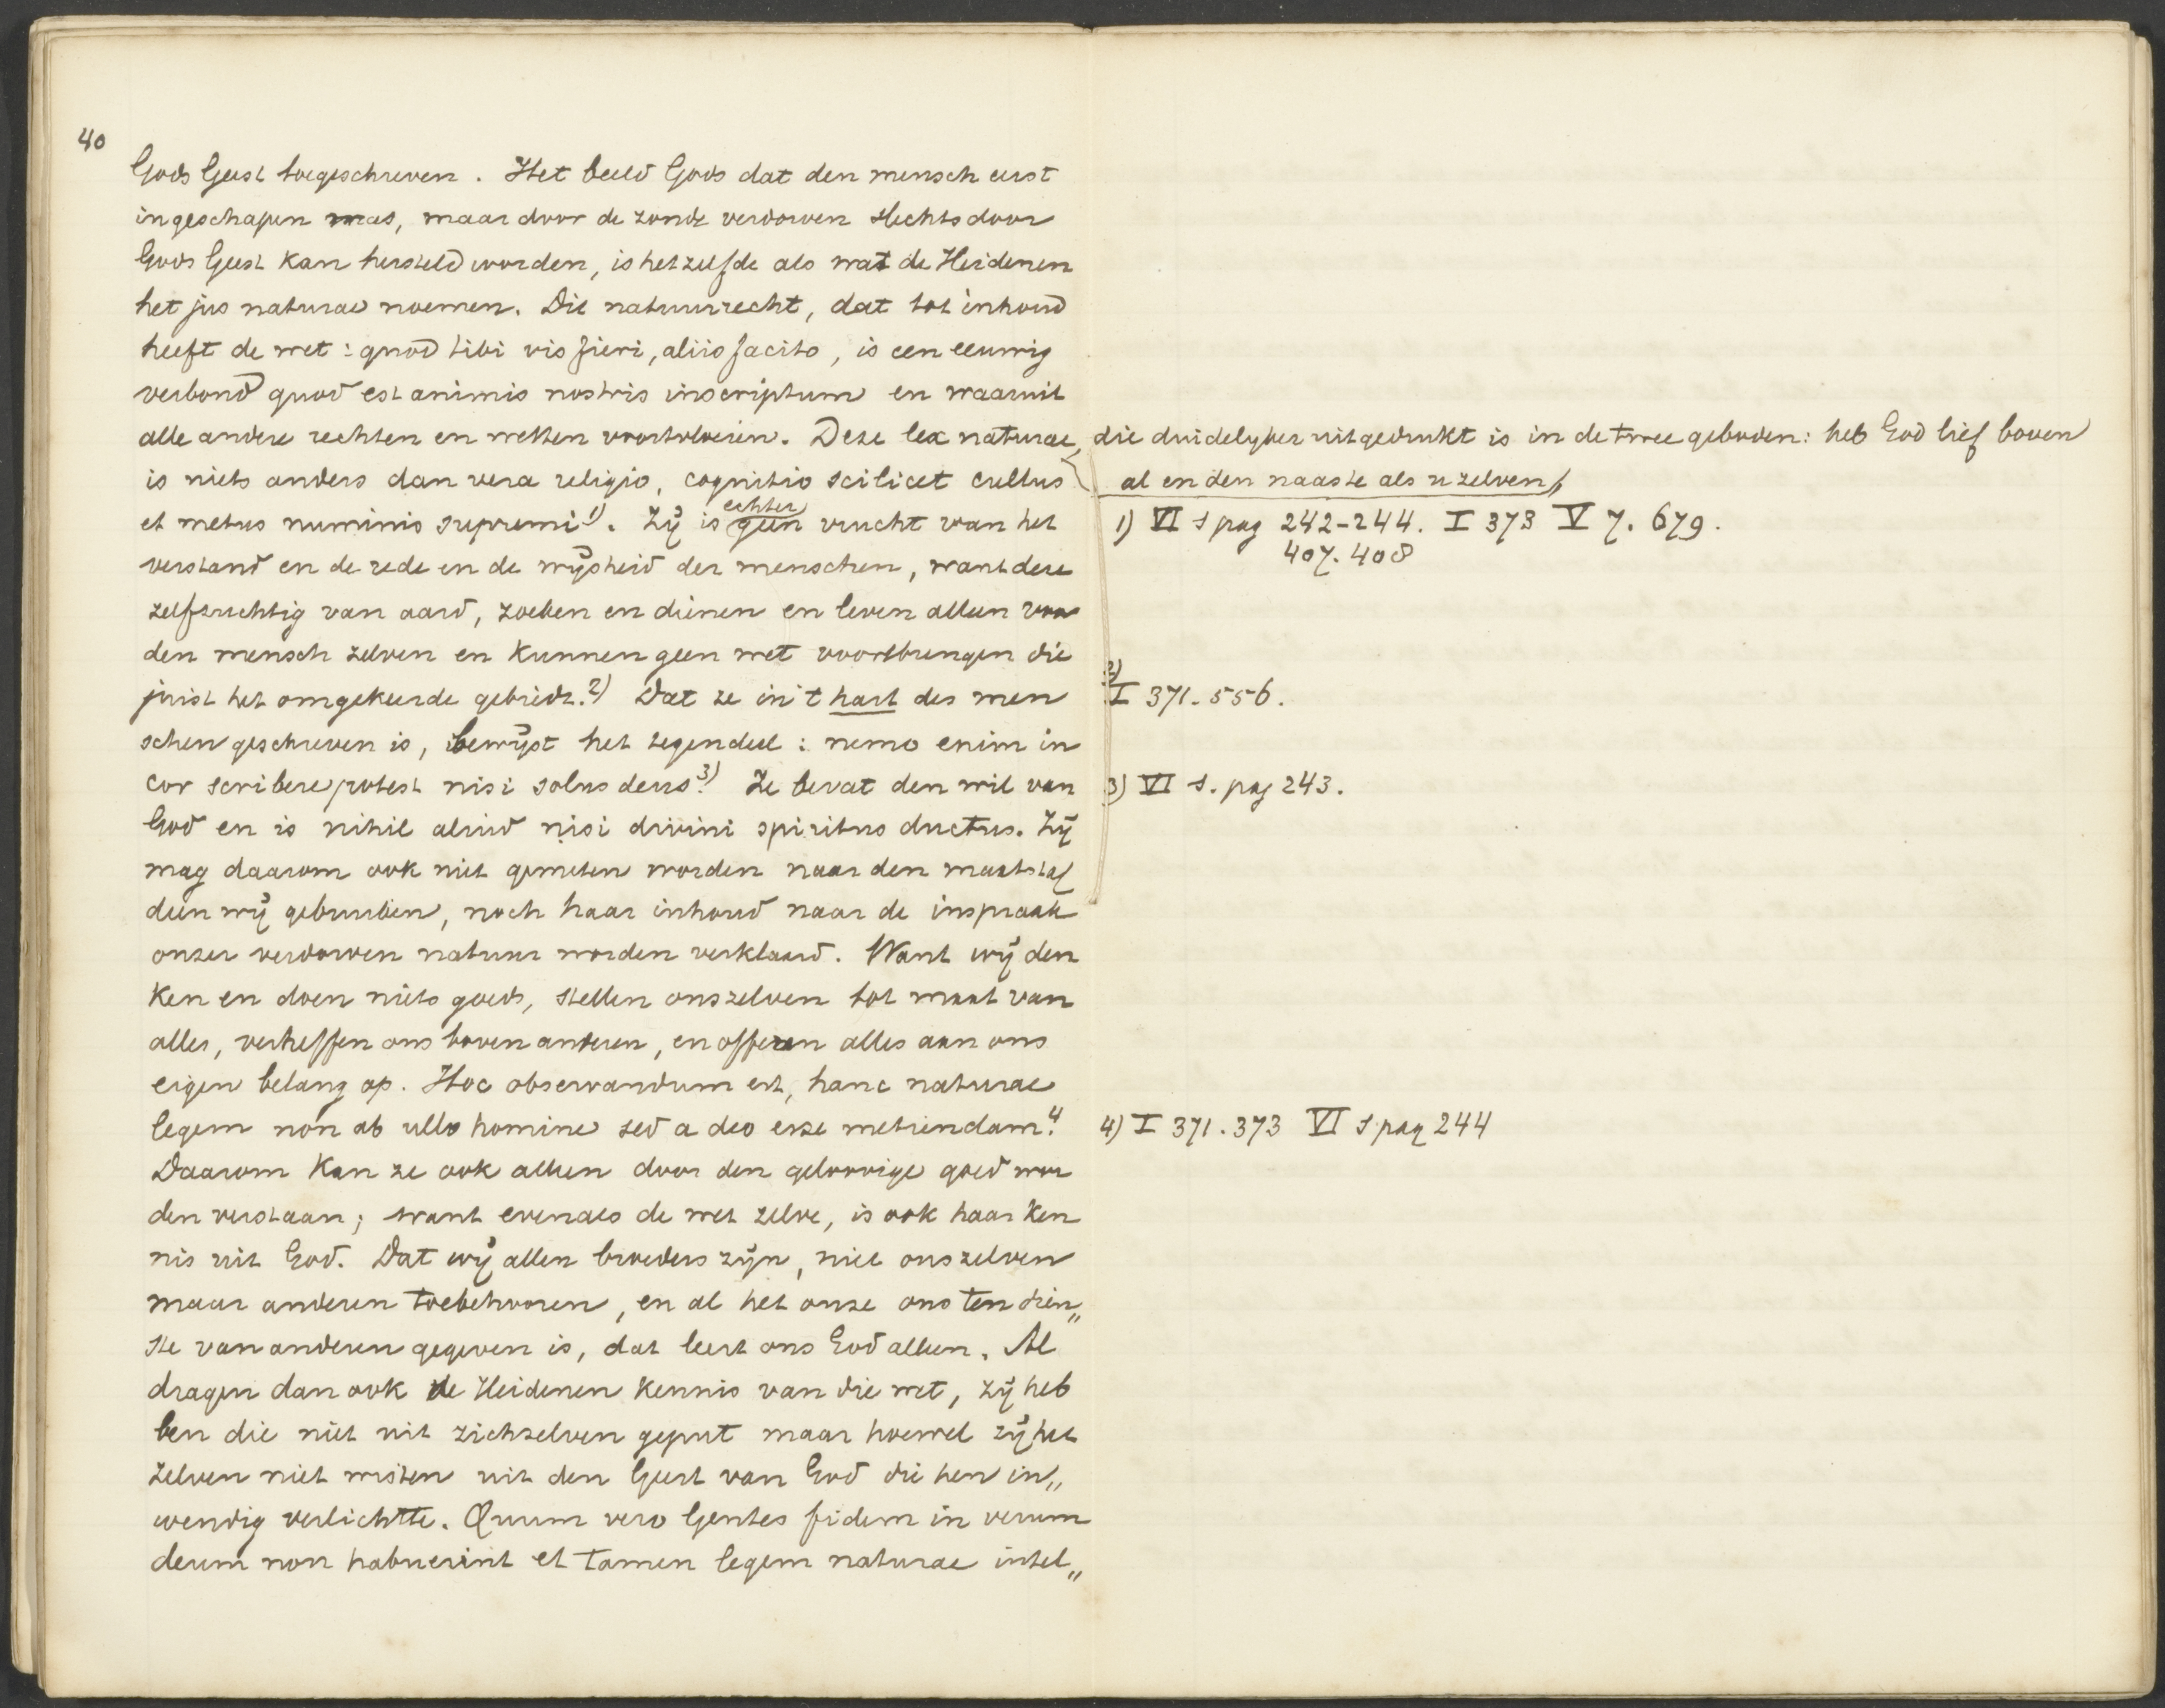 40
Gods Geest toegeschreven. Het beeld Gods dat den mensch eerst
ingeschapen was, maar door de zonde verdorven slechts door
Gods Geest kan hersteld worden, is hetzelfde als wat de Heidenen
het jus naturae noemen. Dit natuurrecht, dat tot inhoud
heeft de wet: quod tibi vis fieri, aliis facito, is een eeuwig
verbond quod est animis nostris inscriptum en waaruit
alle andere rechten en wetten voortvloeien. Deze lex naturae, die duidelyker uitgedrukt is in de twee geboden: heb God lief boven
al en den naaste als u zelven,
is niets anders dan vera religio, cognitio scilicet cultus
et metus numinis supremi 1). Zij is echter geen vrucht van het
1) VI S pag 242-244. I 373 V 7. 679.
407. 408
verstand en de rede en de wijsheid der menschen, want deze
zelfzuchtig van aard, zoeken en dienen en leven alleen voor
den mensch zelven en kunnen geen wet voortbrengen die
juist het omgekeerde gebiedt. 2) Dat ze in 't hart des men
2) I 371. 556.
schen geschreven is, bewijst het tegendeel: nemo enim in
cor scribere potest nisi solus deus. 3) Ze bevat den wil van
3) VI s. pag 243.
God en is nihil aliud nisi divini spiritus ductus. Zij
mag daarom ook niet gemeten worden naar den maatstaf
dien wij gebruiken, noch haar inhoud naar de inspraak
onzer verdorven natuur worden verklaard. Want wij den
ken en doen niets goeds, stellen onszelven tot maat van
alles, verheffen ons boven anderen, en offeren alles aan ons
eigen belang op. Hoc observandum est, hanc naturae
legem non ab ullo homine sed a deo esse metiendam. 4
4) I 371. 373 VI S pag 244
Daarom kan ze ook alleen door den geloovige goed wor
den verstaan; want evenals de wet zelve, is ook haar ken
nis uit God. Dat wij allen broeders zijn, niet onszelven
maar anderen toebehooren, en al het onze ons ten dien„
ste van anderen gegeven is, dat leert ons God alleen. Al
dragen dan ook de Heidenen kennis van die wet, zij heb
ben die niet uit zichzelven geput maar hoewel zij het
zelven niet wisten uit den Geest van God die hen in„
wendig verlichtte. Quum vero Gentes fidem in verum
deum non habuerint et tamen legem naturae intel„